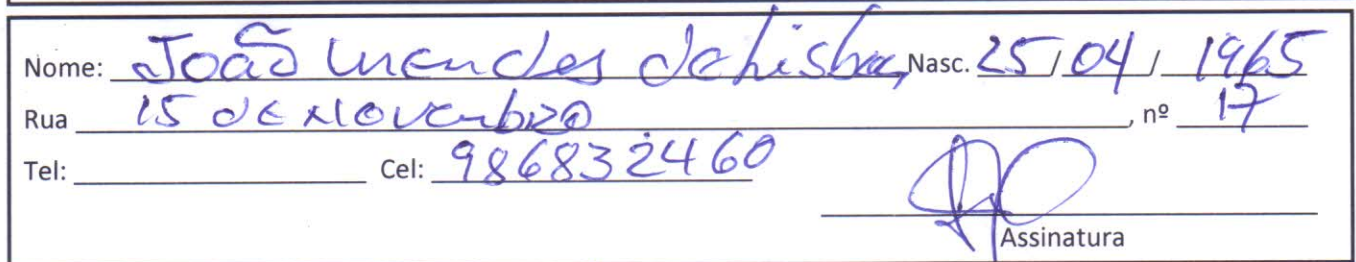 Nome: João Mendes de Lisboa, Nasc. 25/04/1965
Rua 15 de Novembro, nº 17
Tel: Cel: 986832460
Assinatura